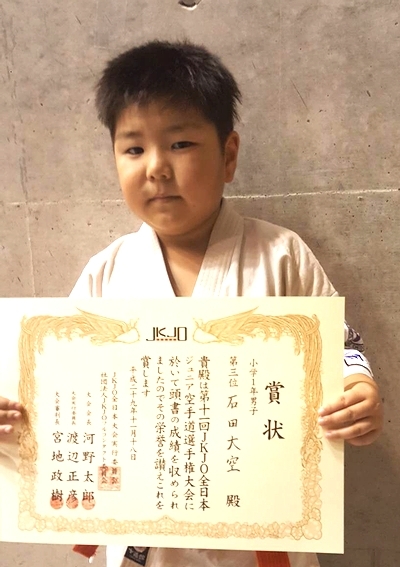 JKJO
賞状
小学1年男子
第三位 石田大空 殿
貴殿は第十一回JKJO全日本
ジュニア空手道選手権大会に
於いて頭書の成績を収められ
ましたのでその栄誉を讃えこれを
賞します
平成二十九年十一月十八日
JKJO全日本大会実行委員会
大会会長 河野太郎
渡辺正彦
大会審判長 宮地政樹